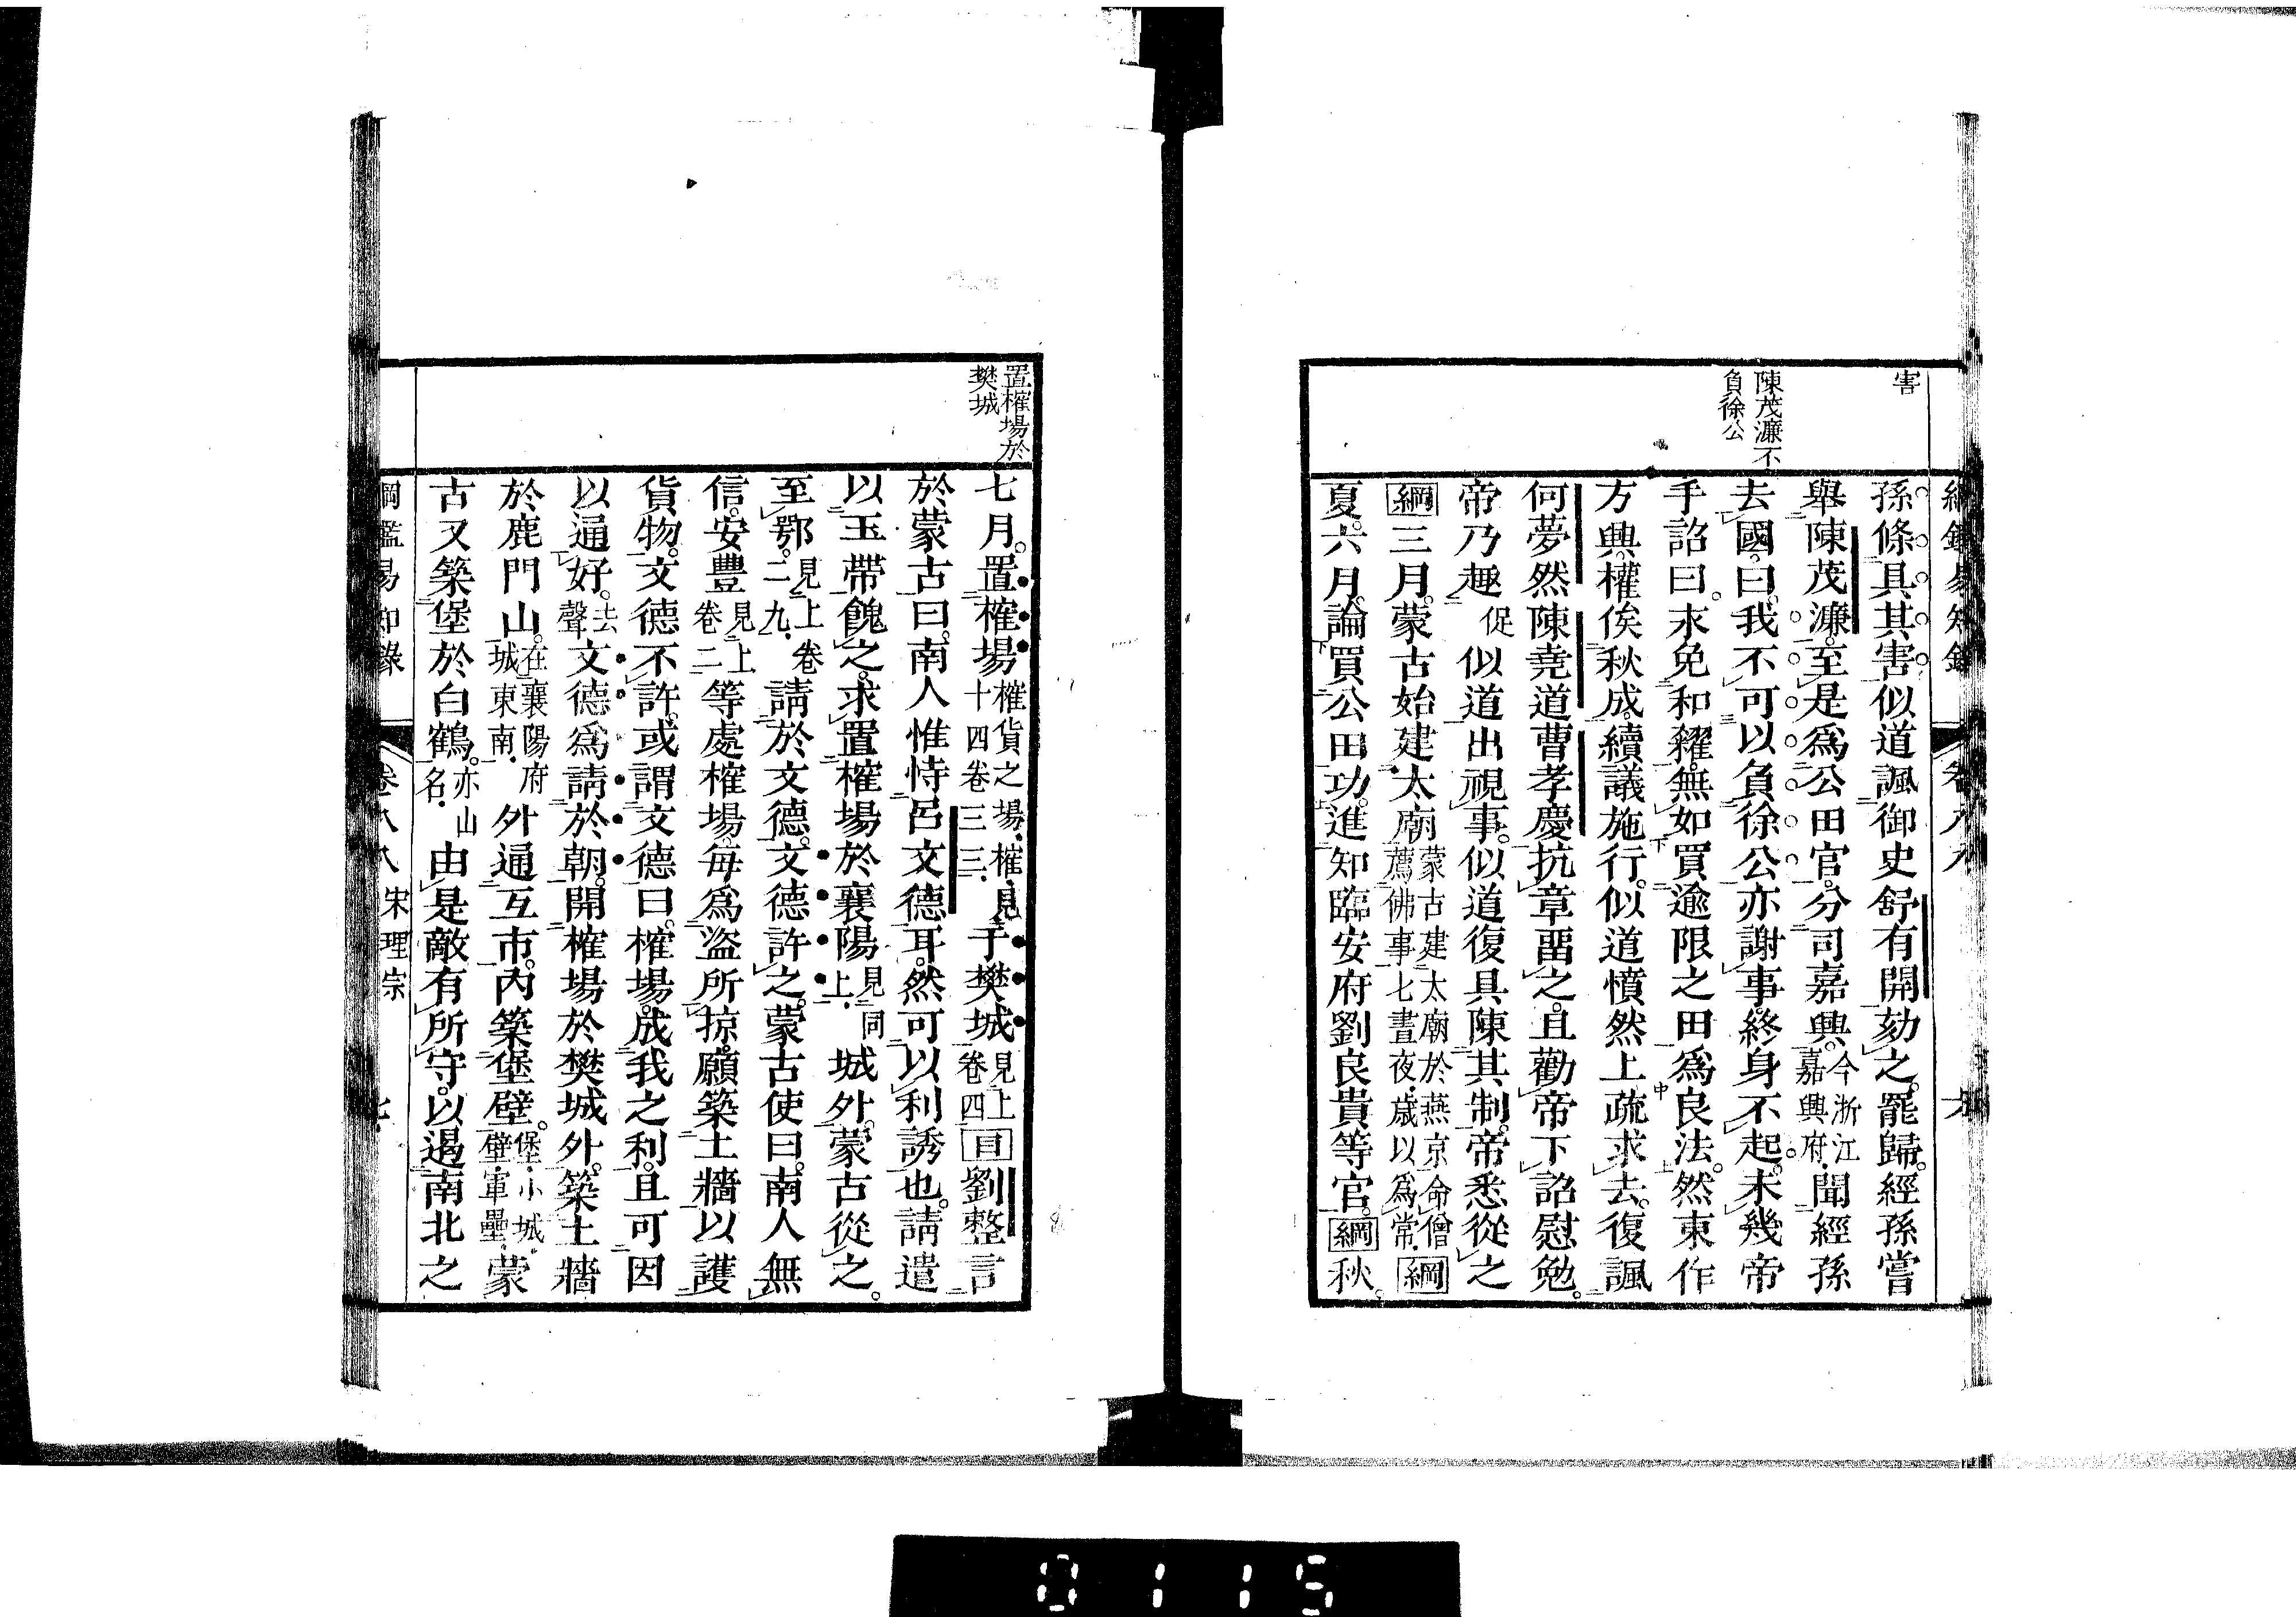 害
陳茂濂不
負徐公
孫條具其害似道諷御史舒有開劾之罷歸經孫嘗
舉陳茂濂至是爲公田官分司嘉興今浙江嘉興府聞經孫
去國曰我不可以負徐公亦謝事終身不起未幾帝
手詔曰求免和糴無如買逾限之田爲良法然東作
方興權俟秋成續議施行似道憤然上疏求去復諷
何夢然陳堯道曹孝慶抗章畱之且勸帝下詔慰勉
帝乃趣促似道出視事似道復具陳其制帝悉從之
綱三月蒙古始建太廟蒙古建太廟於燕京命僧薦佛事七晝夜歲以爲常綱
夏六月論買公田功進知臨安府劉良貴等官綱秋
置榷場於
樊城
七月置榷場榷貨之場榷見十四卷三三于樊城見上卷四目劉整言
於蒙古曰南人惟恃呂文德耳然可以利誘也請遣
以玉帶餽之求置榷場於襄陽見同上城外蒙古從之
至鄂見上卷二九請於文德文德許之蒙古使曰南人無
信安豐見上卷二等處榷場每爲盜所掠願築土牆以護
貨物文德不許或謂文德曰榷場成我之利且可因
以通好去聲文德爲請於朝開榷場於樊城外築土牆
於鹿門山在襄陽府城東南外通互市內築堡壁堡小城壁軍壘蒙
古又築堡於白鶴亦山名由是敵有所守以遏南北之
綱鑑易知錄 卷八八 宋理宗 七
0115